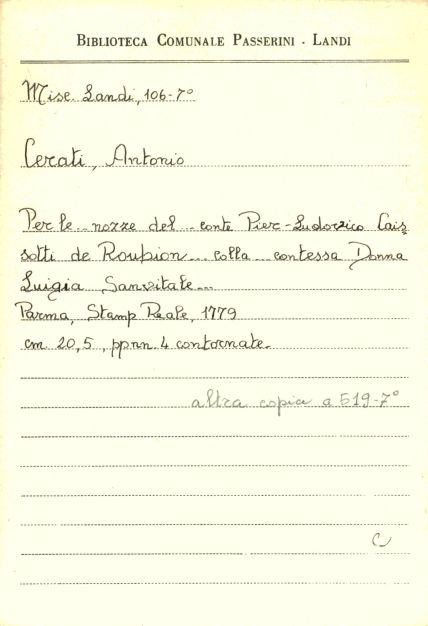 BIBLIOTECA COMUNALE PASSERINI - LANDI
Misc. Landi, 106-7°
Cerati, Antonio
Per le... nozze del... conte Pier-Ludovico Cais=
sotti de Roubion... colla... contessa Donna
Luigia Sanvitale...
Parma, Stamp Reale, 1779
cm 20,5, ppnn. 4 contornate.
altra copia a 519-7°
C